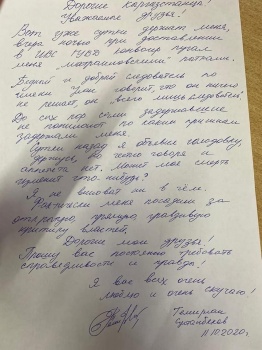 Дорогие Кыргызстанцы!
Уважаемые друзья!
Вот уже сутки держат меня,
вчера ночью при доставлении
в ИВС ГУВД конвоир пугал
меня матраимовскими
Бедный и добрый следователь по
говорит, что он ничего
не решает, он всего лишь следователь.
До сих пор сами задержавшие
не понимают по каким причинам
задержали меня.
Сутки назад я объявил голодовку,
держусь, да честно говоря и
аппетита нет. Может моя смерть
изменит что-нибудь?
Я не виноват ни в чем.
Фактически меня посадили за
открытую, прямую, правдивую
критику властей.
Дорогие мои друзья!
Прошу вас постоянно требовать
справедливости и правды!
Я вас всех очень
люблю и очень скучаю!
Темирлан
Султанбеков
11.10.2020г.